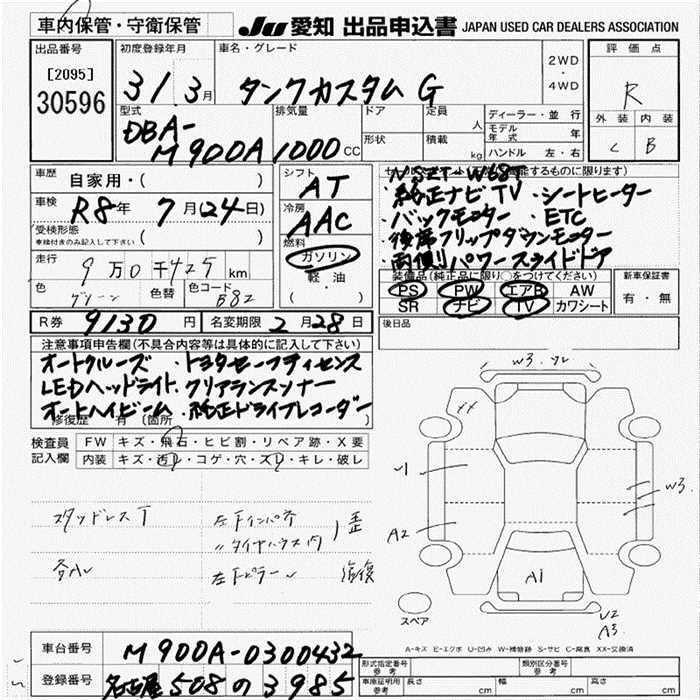 車内保管・守衛保管
JU 愛知 出品申込書 JAPAN USED CAR DEALERS ASSOCIATION
出品番号
[2095]
30596
初度登録年月
31 3月
車名・グレード
タンクカスタム G
2WD
・
4WD
評価点
R
外装 内装
C B
型式
DBA-
M900A
排気量
1000 CC
ドア
定員
人
形状
積載
kg
ディーラー・並行
モデル年式 年
ハンドル 左・右
車歴
自家用・( )
車検
R8年 7月(24日)
受検形態
車検付きのみ記入して下さい ( )
走行
9万0千425km
色
グリーン
色替
色コード
B82
シフト
AT
冷房
AAC
燃料
ガソリン
軽・油
( )
・純正ナビ TV ・シートヒーター
・バックモニター ・ETC
・後席フリップダウンモニター
・両側パワースライドドア
装備品(純正品に限り○をつけてください)
PS PW エアB AW
SR ナビ TV カワシート
新車保証書
有・無
R券 9130円 名変期限 2月28日
後日品
注意事項申告欄(不具合内容等は具体的に記入して下さい)
オートクルーズ ・トヨタセーフティセンス
LEDヘッドライト・クリアランスソナー
オートハイビーム・純正ドライブレコーダー
修復歴 有 (箇所
検査員
記入欄
FW キズ・飛石・ヒビ割・リペア跡・X要
内装 キズ・汚れ・コゲ・穴・スレ・キレ・破レ
スタッドレスT
左下インパネ
〃タイヤハウス内
歪
左下ピラー
修復
W3.
XX
U1
W3.
A2
A1
U2
A3.
スペア
A-キズ E-エクボ U-凹み W-補修跡 S-サビ C-腐食 XX-交換済
車台番号 M900A-0300432
登録番号 名古屋 508 の 3985
形式指定番号
参考
類別区分番号
参考
車庫証明用
参考
長さ cm 幅 cm 高さ cm